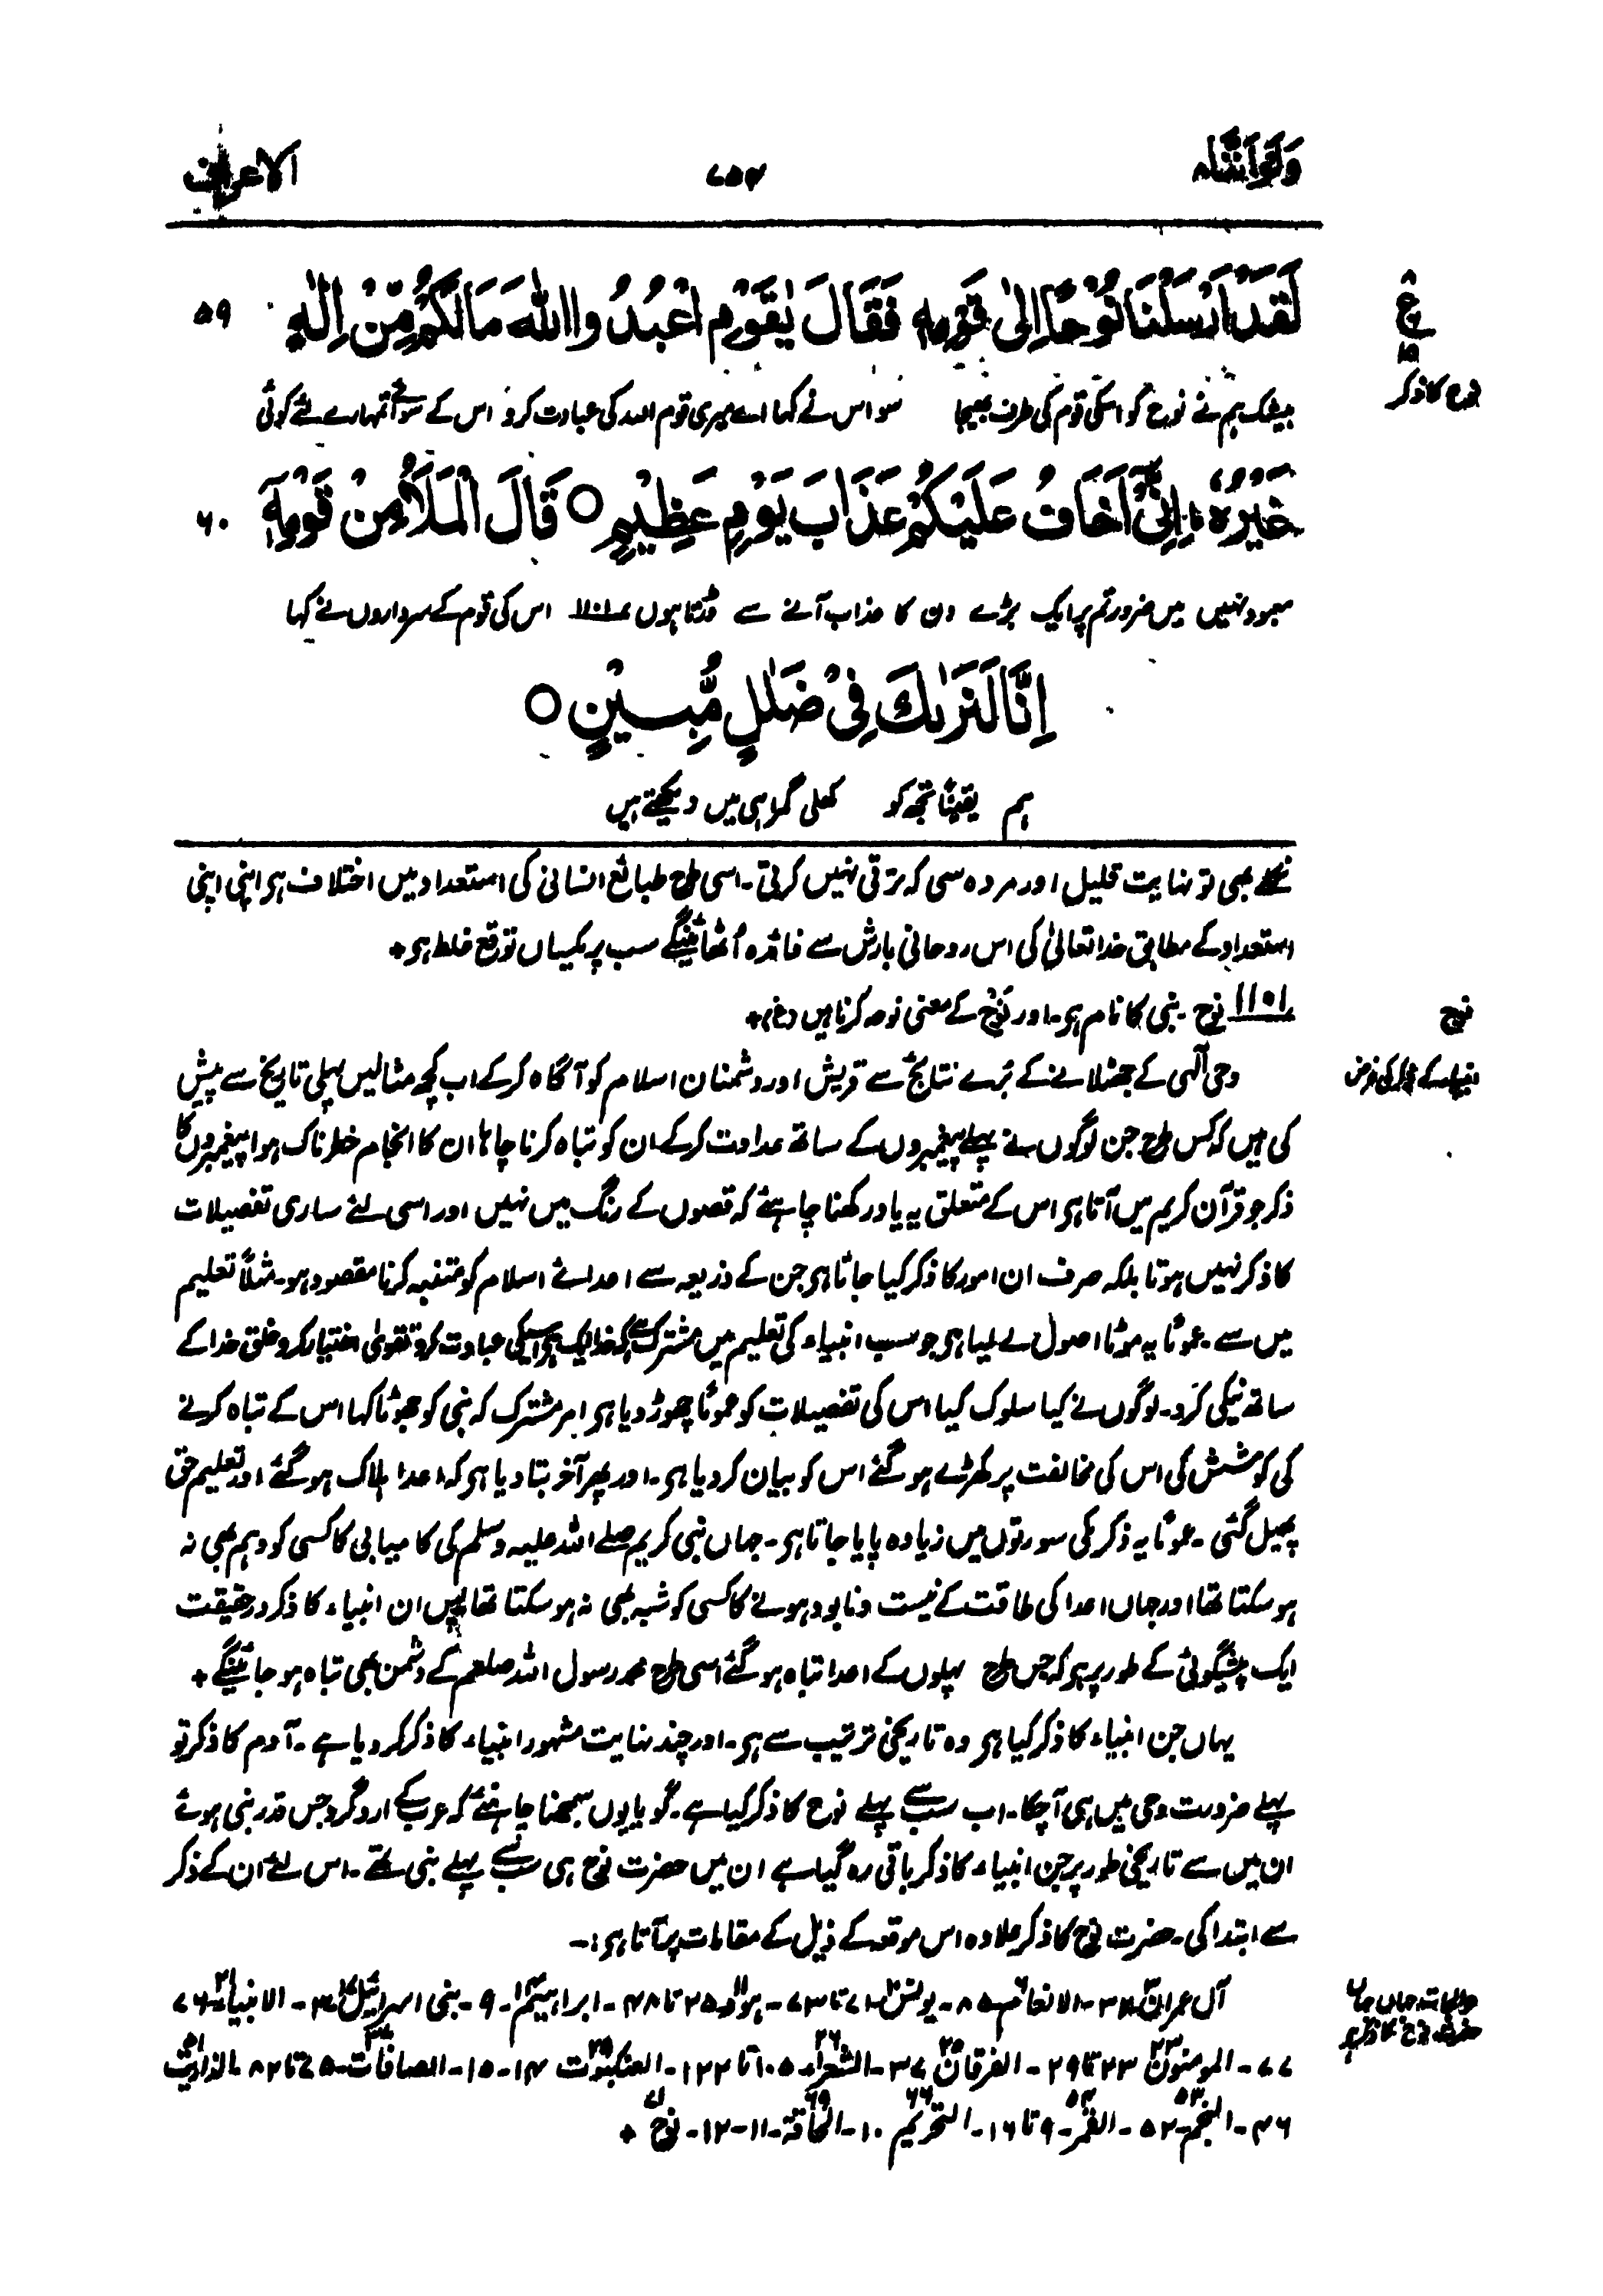 ولواننا ۷۵۴ الاعراف
لَقَدْ اَرْسَلْنَا نُوْحًا اِلٰى قَوْمِهٖ فَقَالَ يٰقَوْمِ اعْبُدُوا اللّٰهَ مَا لَكُمْ مِّنْ اِلٰهٍ ۵۹
ع
۱۵
نوح کا ذکر
بیشک ہم نے نوح کو اسکی قوم کی طرف بھیجا سو اس نے کہا اے میری قوم اللہ کی عبادت کرو اس کے سوائے تمہارے لئے کوئی
غَيْرُهٗ ؕ اِنِّىْٓ اَخَافُ عَلَيْكُمْ عَذَابَ يَوْمٍ عَظِيْمٍ ○ قَالَ الْمَلَاُ مِنْ قَوْمِهٖٓ ۶۰
معبود نہیں میں ضرور تم پر ایک بڑے دن کا عذاب آنے سے ڈرتا ہوں ۱۱۰۱ اس کی قوم کے سرداروں نے کہا
اِنَّا لَنَرٰىكَ فِىْ ضَلٰلٍ مُّبِيْنٍ ○
ہم یقیناً تجھ کو کھلی گمراہی میں دیکھتے ہیں
نکلے بھی تو نہایت قلیل اور مردہ سی کہ ترقی نہیں کرتی۔ اسی طرح طبائع انسانی کی استعداد میں اختلاف ہو اپنی اپنی
استعداد کے مطابق خدا تعالیٰ کی اس روحانی بارش سے فائدہ اُٹھائینگے سب پر یکساں توقع غلط ہو +
۱۱۰۱ نوح۔ نبی کا نام ہو۔ اور نَوْح کے معنی نوحہ کرنا ہیں (غ) +
نوح
وحی آلہی کے جھٹلانے کے بُرے نتائج سے قریش اور دشمنان اسلام کو آگاہ کر کے اب کچھ مثالیں پہلی تاریخ سے پیش
انبیاء کے ذکر کی غرض
کی ہیں کہ کس طرح جن لوگوں نے پہلے پیغمبروں کے ساتھ عداوت کر کے ان کو تباہ کرنا چاہا ان کا انجام خطرناک ہوا پیغمبروں کا
ذکر جو قرآن کریم میں آتا ہو اس کے متعلق یہ یاد رکھنا چاہئے کہ قصوں کے رنگ میں نہیں اور اسی لئے ساری تفصیلات
کا ذکر نہیں ہوتا بلکہ صرف ان امور کا ذکر کیا جاتا ہو جن کے ذریعہ سے اعدائے اسلام کو متنبہ کرنا مقصود ہو۔ مثلاً تعلیم
میں سے۔ عموماً یہ موٹا اصول لے لیا ہو جو سب انبیاء کی تعلیم میں مشترک ہے کہ خدا ایک ہو اسی کی عبادت کرو تقویٰ اختیار کرو خلق خدا کے
ساتھ نیکی کرو۔ لوگوں نے کیا سلوک کیا اس کی تفصیلات کو عموماً چھوڑ دیا ہو امر مشترک کہ نبی کو جھوٹا کہا اس کے تباہ کرنے
کی کوشش کی اس کی مخالفت پر کھڑے ہو گئے اس کو بیان کر دیا ہو۔ اور پھر آخر بتا دیا ہو کہ اعدا ہلاک ہو گئے اور تعلیم حق
پھیل گئی۔ عموماً یہ ذکر مکی سورتوں میں زیادہ پایا جاتا ہو۔ جہاں نبی کریم صلے اللہ علیہ وسلم کی کامیابی کا کسی کو وہم بھی نہ
ہو سکتا تھا اور جہاں اعدا کی طاقت کے نیست و نابود ہونے کا کسی کو شبہ بھی نہ ہو سکتا تھا پس ان انبیاء کا ذکر درحقیقت
ایک پیشگوئی کے طور پر ہو کہ جس طرح پہلوں کے اعدا تباہ ہو گئے اسی طرح محمد رسول اللہ صلعم کے دشمن بھی تباہ ہو جائینگے +
یہاں جن انبیاء کا ذکر کیا ہو وہ تاریخی ترتیب سے ہو۔ اور چند نہایت مشہور انبیاء کا ذکر کر دیا ہے۔ آدم کا ذکر تو
پہلے ضرورت وحی میں ہی آ چکا۔ اب سب سے پہلے نوح کا ذکر کیا ہے۔ گویا یوں سمجھنا چاہئے کہ عرب کے اردگرد جس قدر نبی ہوئے
ان میں سے تاریخی طور پر جن انبیاء کا ذکر باقی رہ گیا ہے ان میں حضرت نوح ہی سب سے پہلے نبی تھے۔ اس لئے ان کے ذکر
سے ابتدا کی۔ حضرت نوح کا ذکر علاوہ اس موقعہ کے ذیل کے مقامات پر آتا ہو:۔
آل عمران۳۔ ۳۲۔ الانعام۶۔ ۸۵۔ یونس۱۰۔ ۷۱ تا ۷۳۔ ہود۱۱۔ ۲۵ تا ۴۸۔ ابراہیم۱۴۔ ۹۔ بنی اسرائیل۱۷ ۳۔ الانبیاء۲۱۔ ۷۶
حوالجات جہاں جہاں
حضرت نوح کا ذکر ہو
۷۷۔ المومنون۲۳ ۲۳ تا ۲۹۔ الفرقان۲۵ ۳۷۔ الشعراء۲۶ ۱۰۵ تا ۱۲۲۔ العنکبوت۲۹ ۱۴۔ ۱۵۔ الصافات۳۷۔ ۷۵ تا ۸۲۔ الذاریات۵۱
۴۶۔ النجم۵۳۔ ۵۲۔ القمر۵۴۔ ۹ تا ۱۶۔ التحریم۶۶ ۱۰۔ الحاقۃ۶۹۔ ۱۱۔ ۱۲۔ نوح۷۱ +